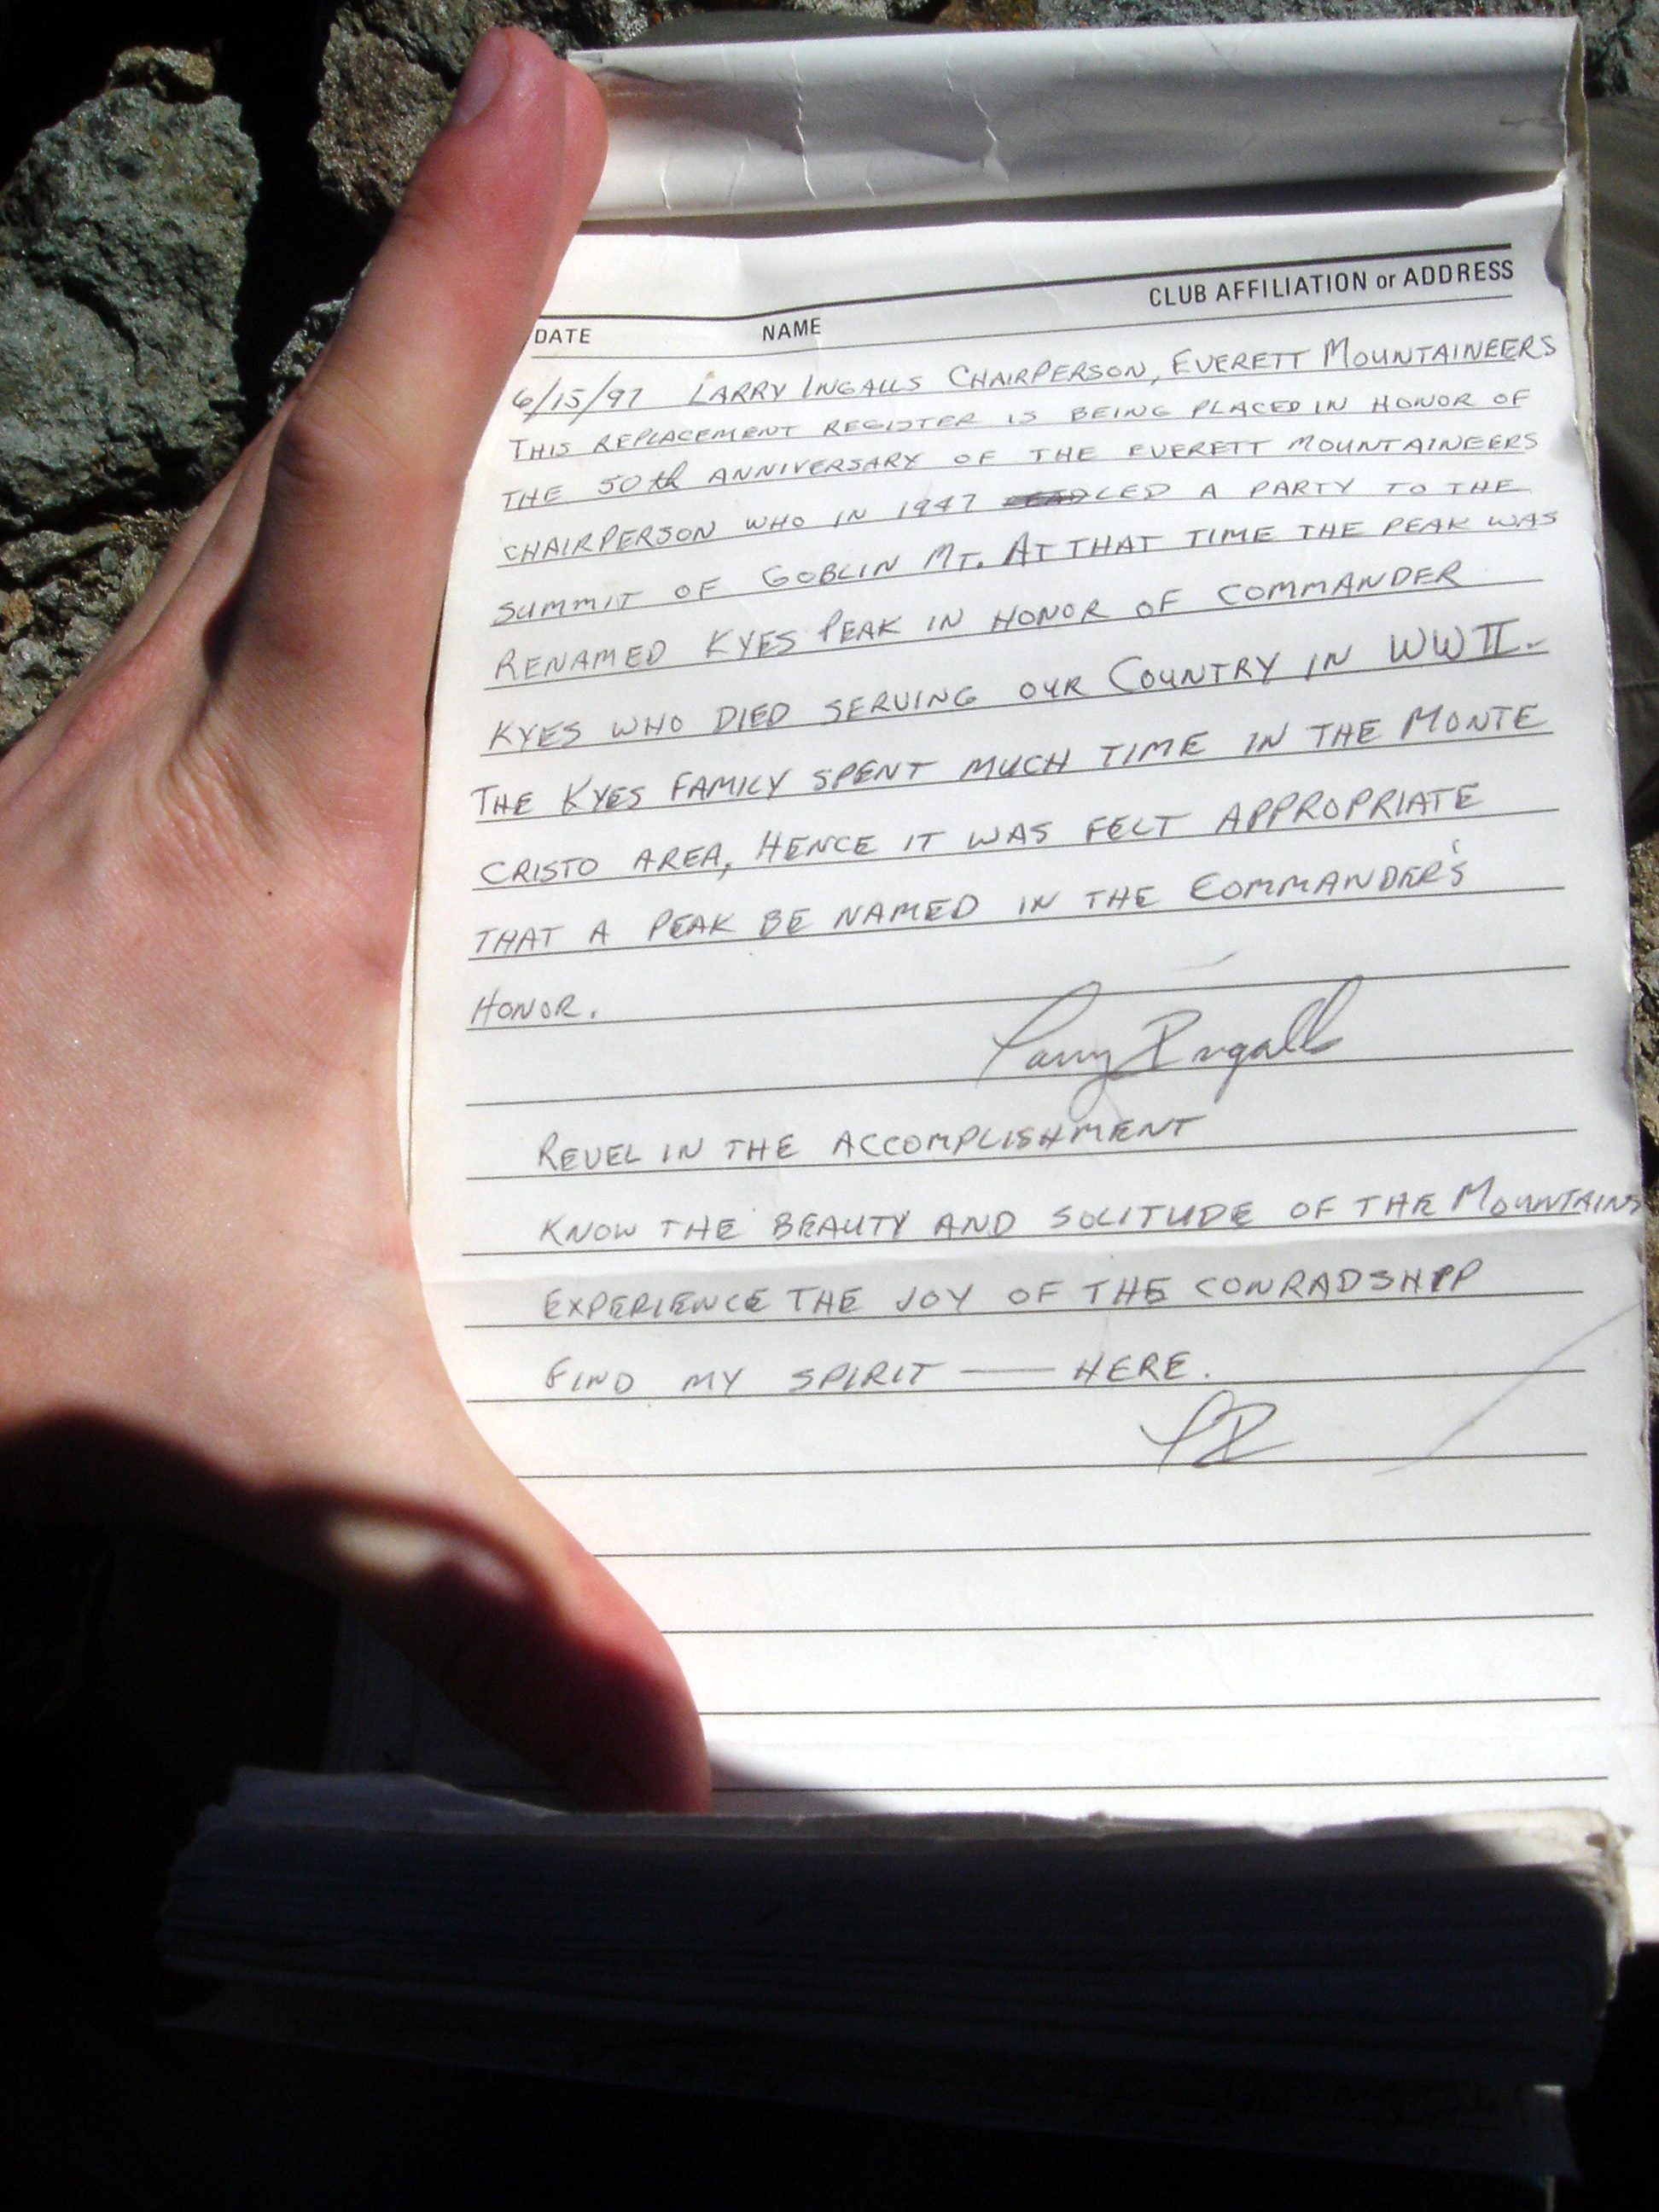 CLUB AFFILIATION or ADDRESS
DATE NAME
6/15/97 LARRY INGALLS CHAIRPERSON, EVERETT MOUNTAINEERS
THIS REPLACEMENT REGISTER IS BEING PLACED IN HONOR OF
THE 50th ANNIVERSARY OF THE EVERETT MOUNTAINEERS
CHAIRPERSON WHO IN 1947 LED A PARTY TO THE
SUMMIT OF GOBLIN MT. AT THAT TIME THE PEAK WAS
RENAMED KYES PEAK IN HONOR OF COMMANDER
KYES WHO DIED SERVING OUR COUNTRY IN WWII.
THE KYES FAMILY SPENT MUCH TIME IN THE MONTE
CRISTO AREA, HENCE IT WAS FELT APPROPRIATE
THAT A PEAK BE NAMED IN THE COMMANDER'S
HONOR.
Larry Ingalls
REVEL IN THE ACCOMPLISHMENT
KNOW THE BEAUTY AND SOLITUDE OF THE MOUNTAINS
EXPERIENCE THE JOY OF THE CONRADSHIP
FIND MY SPIRIT — HERE.
LI